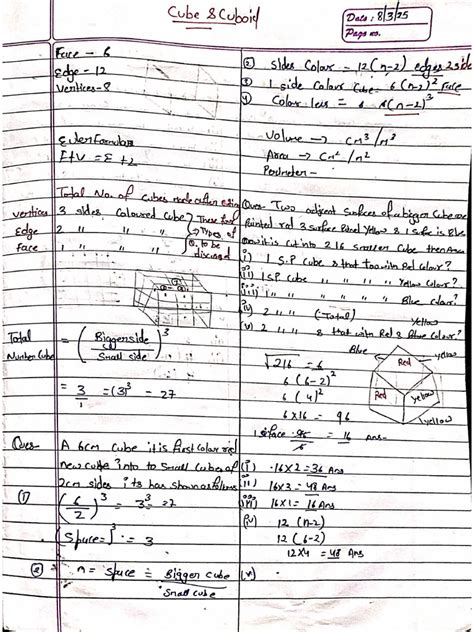 Cube & Cuboid
Date: 8/3/25
Page no.
Face - 6
Edge - 12
Vertices - 8
Euler Formula
F+V = E + 2
Total No. of cubes made after
vertices 3 sides coloured cube
Edge 2 " " "
Face 1 " " "
These four
Types of
Q. to be
discussed
Total
Number Cube = (Bigger side / Small side)³
= 3/1 = (3)³ = 27
Ques- A 6cm cube it is first colour red
new cube in to to small cubes of
2cm sides its has shown as follows
(1) (6/2)³ = 3³ = 27
(Space)³ = 3
(2) n = Space = Bigger cube / Small cube
(2) Sides Colour - 12(n-2) edges 2 side
(3) 1 side Colour Cube - 6(n-2)² Face
(4) Colour less = (n-2)³
Volume → cm³/m³
Area → cm²/m²
Perimeter -
Ques- Two adjcent Surfaces of a bigger Cube are
painted red 3 surface Paint Yellow & 1 Sufac is Blue
now it is cut into 216 smaller Cube then Answ
(i) 1 S.P cube & that too with Red Colour?
(ii) 1 S.P " " " " " Yellow Colour?
(iii) 1 " " " " " " Blue Colour?
(iv) 2 " " " (-Total) Yellow
(v) 2 " " " & that with Red & Blue Colour?
√216 = 6
6(6-2)²
6(4)²
6×16 = 96
1 surface 96/6 = 16 Ans-
Blue
Yellow
Red
Red
Yellow
Yellow
(i) 16×2 = 36 Ans
(ii) 16×3 = 48 Ans
(iii) 16×1 = 16 Ans
(iv) 12(n-2)
12(6-2)
12×4 = 48 Ans
(v)